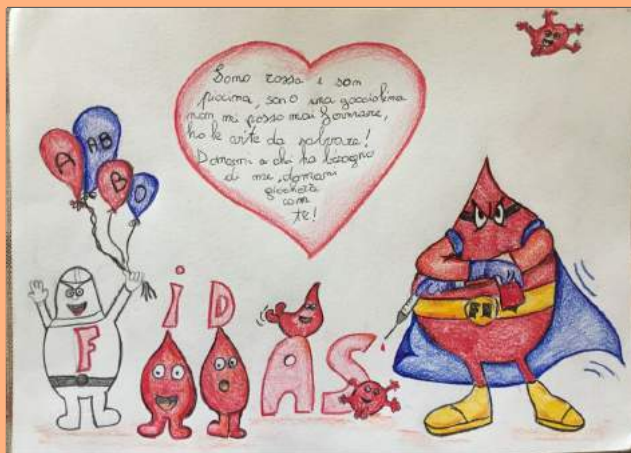 Sono rossa e son
piccina, sono una gocciolina
non mi posso mai fermare,
ho le vite da salvare!
Donami a chi ha bisogno
di me, domani
giocherà
con
te!
A
AB
B
O
F
iDAS